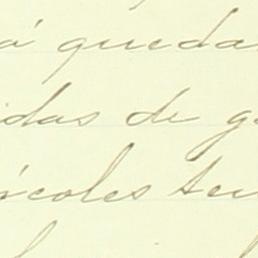 á queda
idas de g
ércoles ten